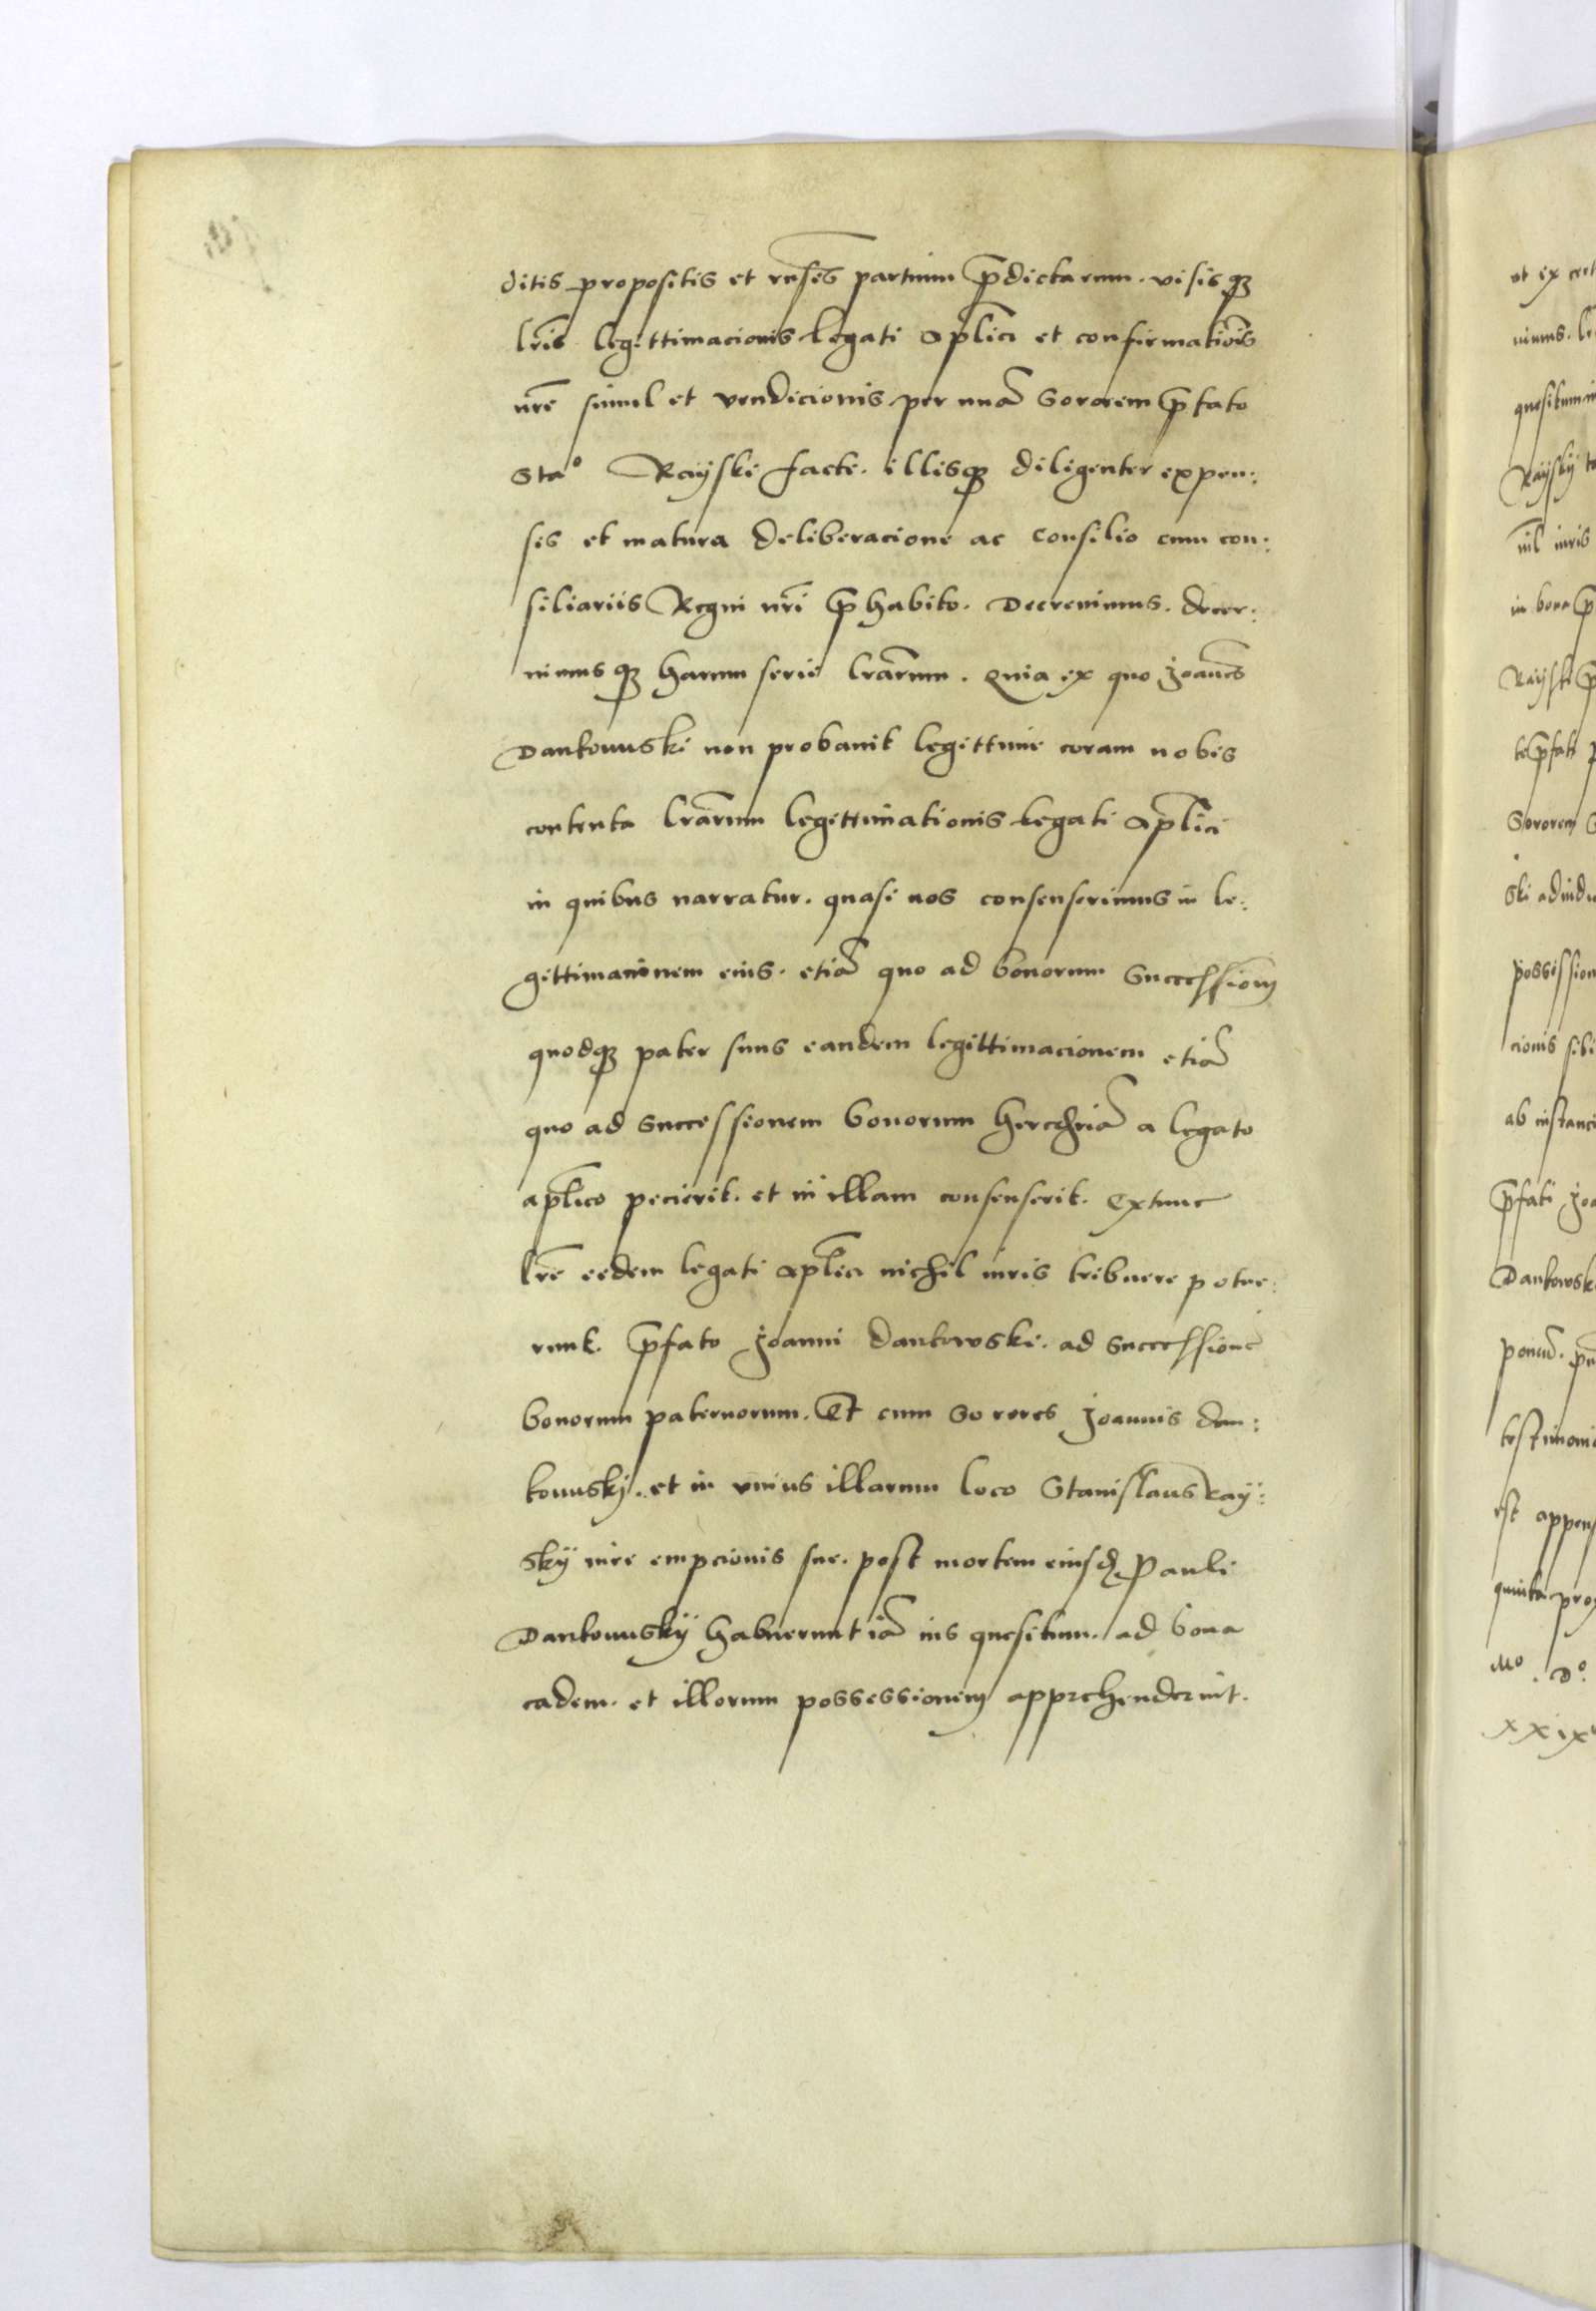 ditis propositis et rñsis partium p̄dictarum. visisqꝫ
lr̄is legittimacionis legati apl̄ici et confirmatiōis
nr̄e simul et vendicionis per unā sororem p̄fato
Stao Rayski facte. illisqꝫ diligenter expen:
sis et matura deliberacione ac consilio cum con:
siliariis Regni nr̄i p̄habito. Decrevimus. decer:
nimusqꝫ harum serie lrārum. Quia ex quo Joannes
Dankouuski non probavit legittime coram nobis
contenta lrārum legittimationis legati apl̄ici
in quibus narratur. quasi nos consenserimus in le:
gittimacionem eius. etiā quo ad bonorum successionem
quodqꝫ pater suus eandem legittimacionem etiā
quo ad successionem bonorum a legato
apl̄ico pecierit. et in illam consenserit. Extunc
lr̄e eedem legati apl̄ici nichil iuris tribuere potue:
runt. p̄fato Joanni Dankowski. ad successionē
bonorum paternorum. Et cum sorores Joannis Dan:
kouuskj. et in unius illarum loco Stanislaus Ray:
skÿ iure empcionis sue. post mortem eiusdꝫ Pauli
Dankouuskÿ habuerunt iā ius quesitum. ad bona
eadem. et illorum possessionem apprehenderint.
ut ex
nimus.
quesitum
Raÿskÿ
nil iuris
in bona p̄
Rayski p̄
te p̄fati
sororem
ski
possession
cionis sibi
ab instanci
p̄fati Joa
Dankowsk
testimoni
est appens
quinta
Mo. Do.
xxix